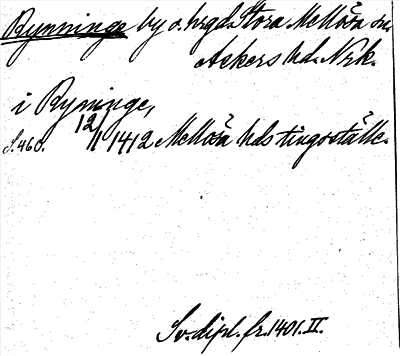 Rymninge by o. hrgd. Stora Mellösa sn.
Askers hd. Nrk.
i Ryninge,
S. 460. 12/11 1412 Mellösa hds tingsställe.
Sv. dipl. fr. 1401. II.